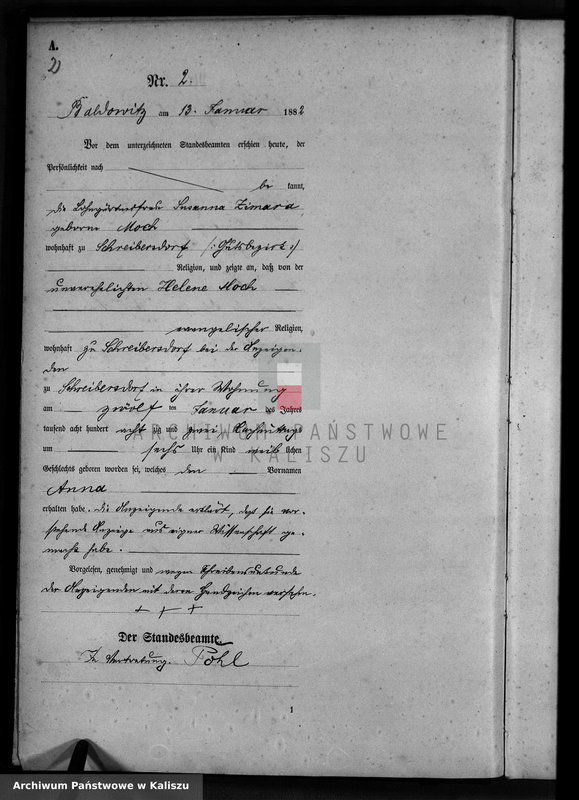 A.
2)
Nr. 2.
Baldowitz am 13. Januar 1882
Vor dem unterzeichneten Standesbeamten erschien heute, der
Persönlichkeit nach
be kannt,
die Lohngärtnerfrau Susanna Zimara
geborne Moch
wohnhaft zu Schreibersdorf /: Gutsbezirk :/
Religion, und zeigte an, daß von der
unverehelichten Helene Moch
evangelischer Religion,
wohnhaft zu Schreibersdorf bei der Anzeigen-
den
zu Schreibersdorf in ihrer Wohnung
am zwölf ten Januar des Jahres
tausend acht hundert acht zig und zwei Nachmittags
um sechs Uhr ein Kind weib lichen
Geschlechts geboren worden sei, welches den Vornamen
Anna
erhalten habe. Die Anzeigende erklärt, daß sie vor-
stehende Anzeige aus eigner Wissenschaft ge-
macht habe.
Vorgelesen, genehmigt und wegen Schreibensunkunde
der Anzeigenden mit deren Handzeichen versehen.
+ + +
Der Standesbeamte.
In Vertretung. Pohl
1
ARCHIWUM PAŃSTWOWE
W KALISZU
Archiwum Państwowe w Kaliszu